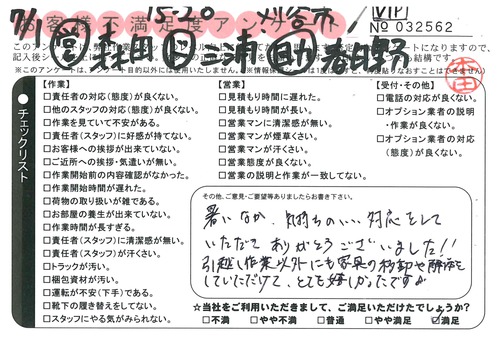 お客様不満足度アンケート
7/1 営 森田 三浦 助 春日野
15-20 刈谷市
VIP
No 032562
記入後シー
※このアンケートは、アンケート目的以外には使用いたしません。
チェックリスト
【作業】
□責任者の対応(態度)が良くない。
□他のスタッフの対応(態度)が良くない。
□作業を見ていて不安がある。
□責任者(スタッフ)に好感が持てない。
□お客様への挨拶が出来ていない。
□ご近所への挨拶・気遣いが無い。
□作業開始前の内容確認がなかった。
□作業開始時間が遅れた。
□荷物の取り扱いが雑である。
□お部屋の養生が出来ていない。
□作業時間が長すぎる。
□責任者(スタッフ)に清潔感が無い。
□責任者(スタッフ)が汗くさい。
□トラックが汚い。
□梱包資材が汚い。
□運転が不安(下手)である。
□靴下の履き替えをしてない。
□スタッフにやる気がみられない。
【営業】
□見積もり時間に遅れた。
□見積もり時間が長い。
□営業マンに清潔感が無い。
□営業マンが煙草くさい。
□営業マンが汗くさい。
□営業態度が良くない。
□営業の説明と作業が一致してない。
【受付・その他】
□電話の対応が良くない。
□オプション業者の説明
・作業が良くない。
□オプション業者の対応
(態度)が良くない。
その他、ご意見・ご要望等ありましたらお書き下さい。
暑いなか、気持ちのいい対応をして
いただきて ありがとうございました!!
引越し作業以外にも家具の移動や解体を
していただけて、とても嬉しかったです♪
☆当社をご利用いただきまして、ご満足いただけてしょうか?
□不満 □やや不満 □普通 □やや満足 ☑満足